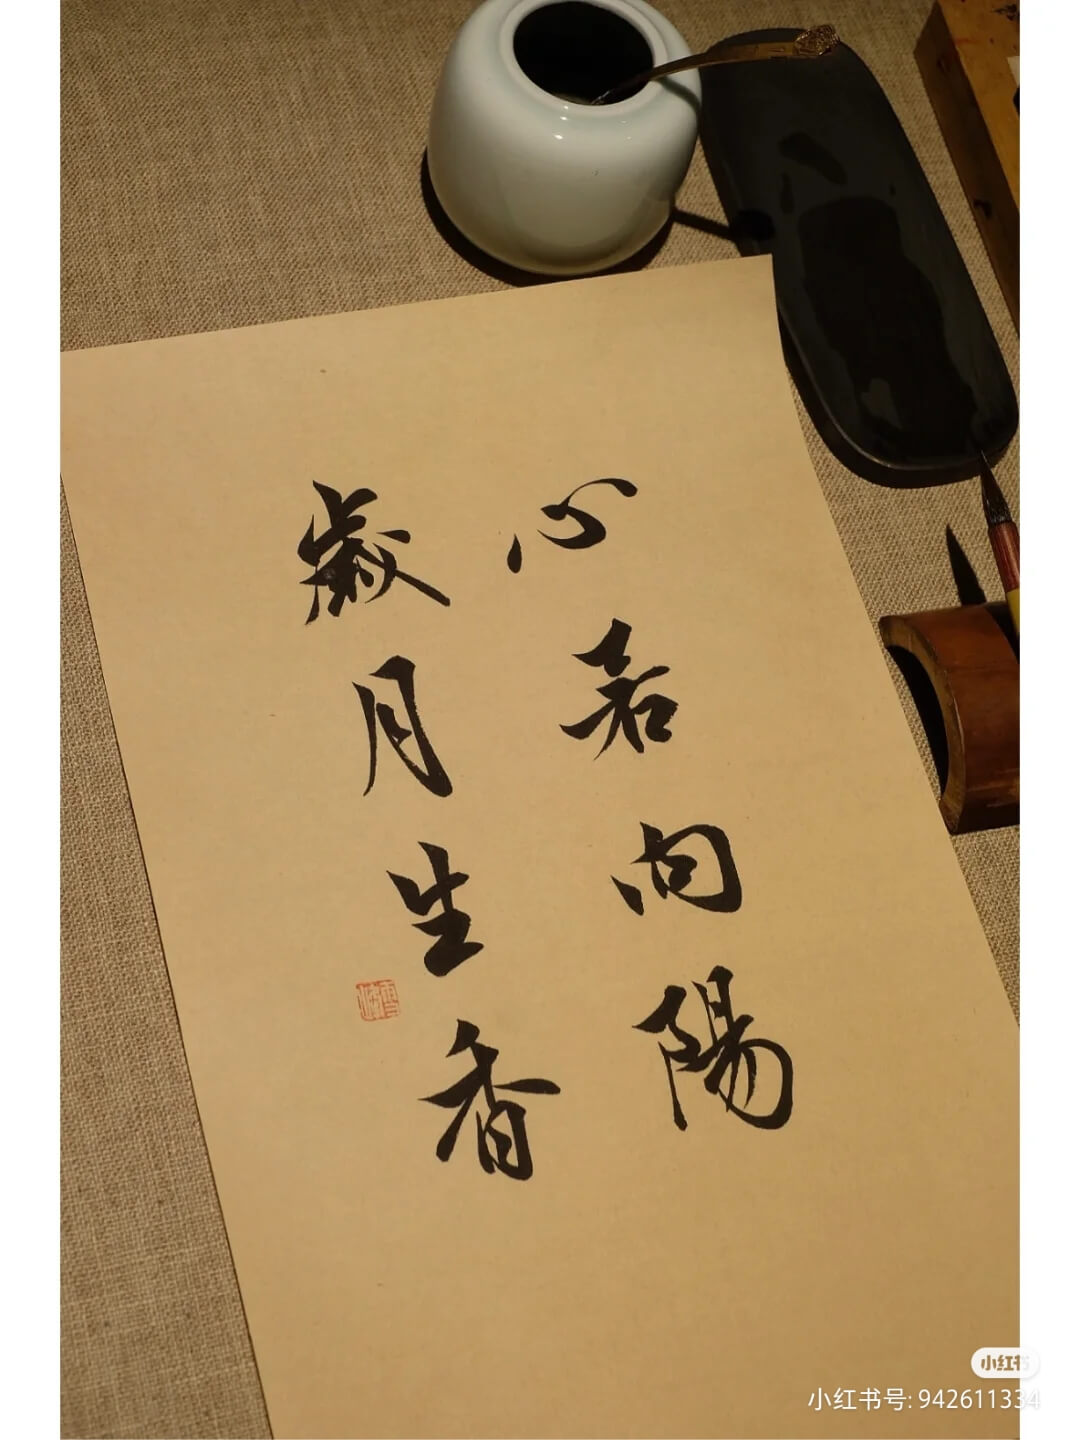 心若向陽
歲月生香
小红书
小红书号: 942611334